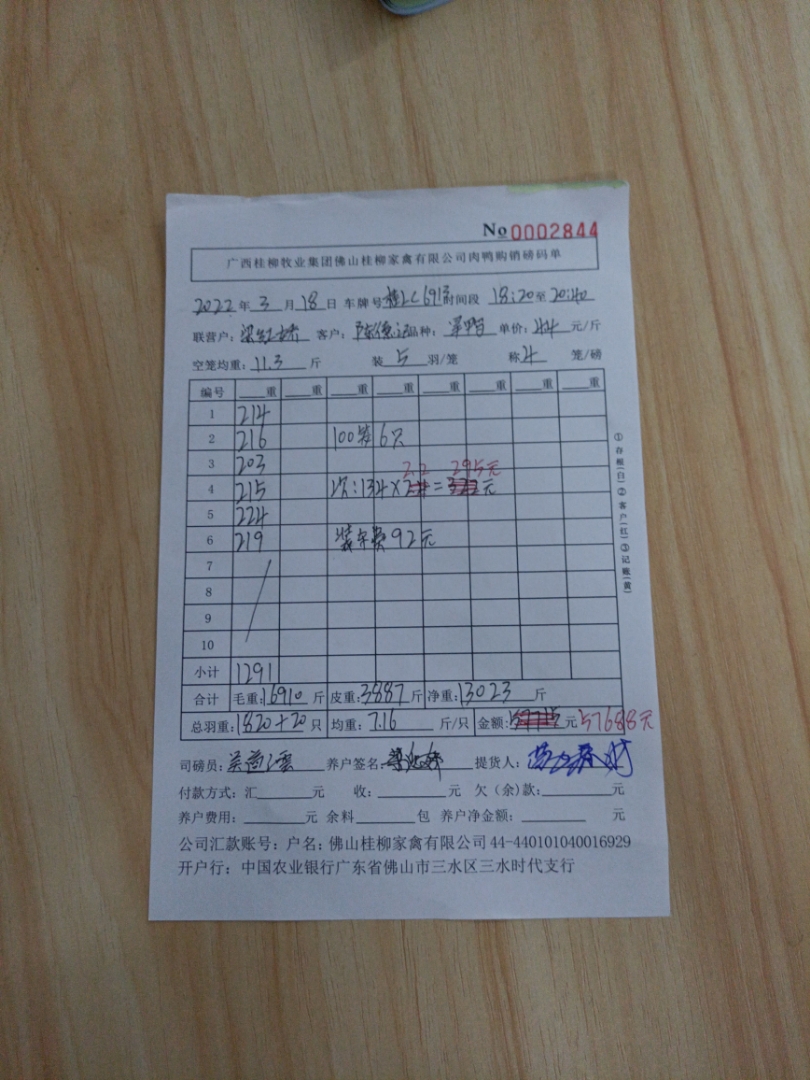 No 0002844
广西桂柳牧业集团佛山桂柳家禽有限公司肉鸭购销磅码单
2022年3月18日 车牌号桂LC6913时间段 18:20至20:40
联营户: 客户:陈德 品种: 单价:4.4 元/斤
空笼均重:11.3 斤 装5羽/笼 称4 笼/磅
编号 重 重 重 重 重 重 重 重
1 214
2 216 100装6只
3 203 2.2 295元
4 215 次:134× = 元
5 224
6 219 装车费92元
7
8
9
10
小计 1291
合计 毛重:16910 斤 皮重:3887 斤 净重:13023 斤
总羽重:1820+20 只 均重:7.16 斤/只 金额: 元 57688元
①存根(白)②客户(红)③记账(黄)
司磅员: 养户签名: 提货人:
付款方式:汇 元 收: 元 欠(余)款: 元
养户费用: 元 余料 包 养户净金额: 元
公司汇款账号:户名:佛山桂柳家禽有限公司 44-440101040016929
开户行:中国农业银行广东省佛山市三水区三水时代支行